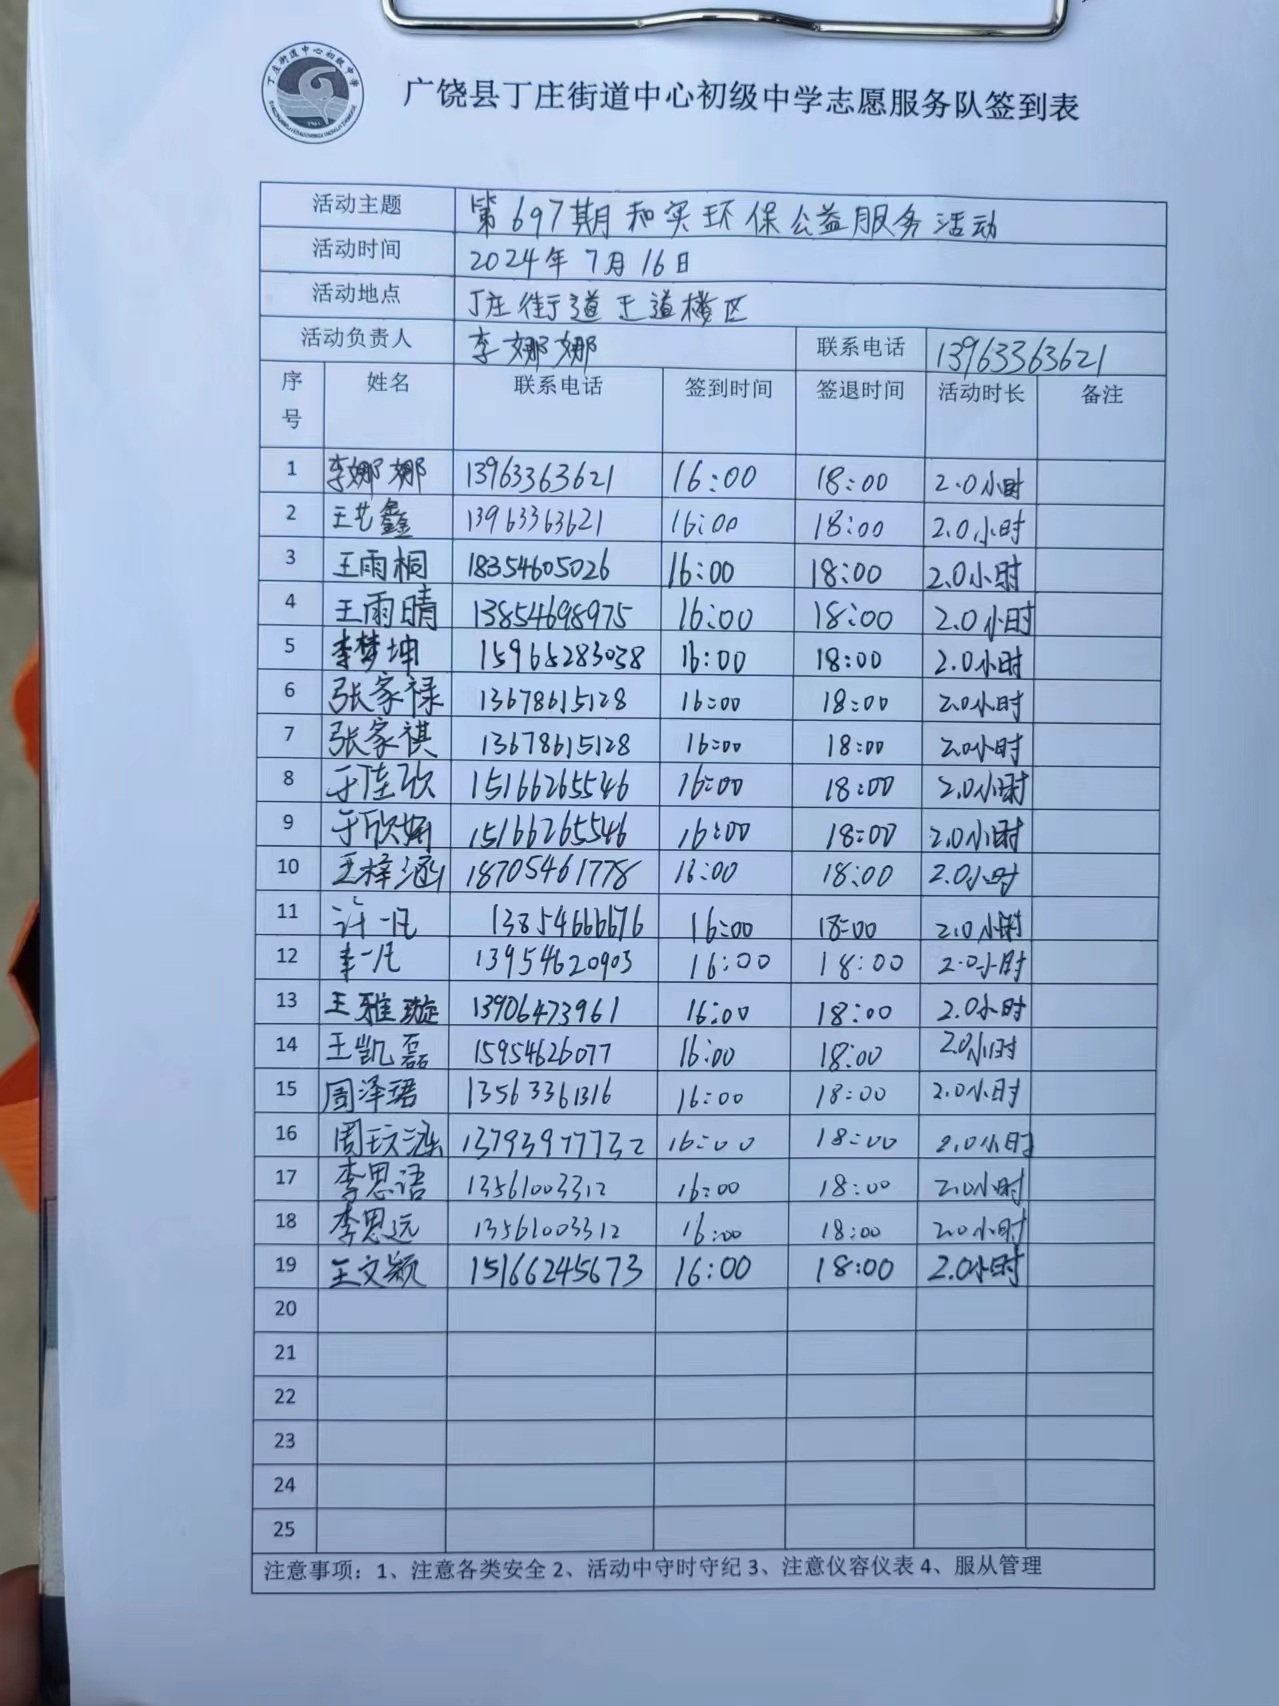 丁庄街道中心初级中学
广饶县丁庄街道中心初级中学志愿服务队签到表
活动主题 第697期和实环保公益服务活动
活动时间 2024年7月16日
活动地点 丁庄街道王道楼区
活动负责人 李娜娜 联系电话 13963363621
序号 姓名 联系电话 签到时间 签退时间 活动时长 备注
1 李娜娜 13963363621 16:00 18:00 2.0小时
2 王艺鑫 13963363621 16:00 18:00 2.0小时
3 王雨桐 18354605026 16:00 18:00 2.0小时
4 王雨晴 13854698975 16:00 18:00 2.0小时
5 李梦坤 15965283038 16:00 18:00 2.0小时
6 张家禄 13678615128 16:00 18:00 2.0小时
7 张家祺 13678615128 16:00 18:00 2.0小时
8 于佳欣 15166265546 16:00 18:00 2.0小时
9 于欣娟 15166265546 16:00 18:00 2.0小时
10 王梓涵 18705461778 16:00 18:00 2.0小时
11 许一凡 13854666676 16:00 18:00 2.0小时
12 李一凡 13954620903 16:00 18:00 2.0小时
13 王雅璇 13906473961 16:00 18:00 2.0小时
14 王凯磊 15954626077 16:00 18:00 2.0小时
15 周泽珺 13563361316 16:00 18:00 2.0小时
16 周玟涵 13793977732 16:00 18:00 2.0小时
17 李思语 13561003312 16:00 18:00 2.0小时
18 李思远 13561003312 16:00 18:00 2.0小时
19 王文颖 15166245673 16:00 18:00 2.0小时
20
21
22
23
24
25
注意事项：1、注意各类安全 2、活动中守时守纪 3、注意仪容仪表 4、服从管理